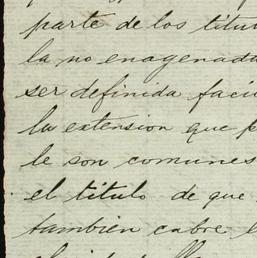 parte de los titu
la no enagenada
ser definida faci
la extension que p
le son comunes
el titulo de que
tambien cabre l